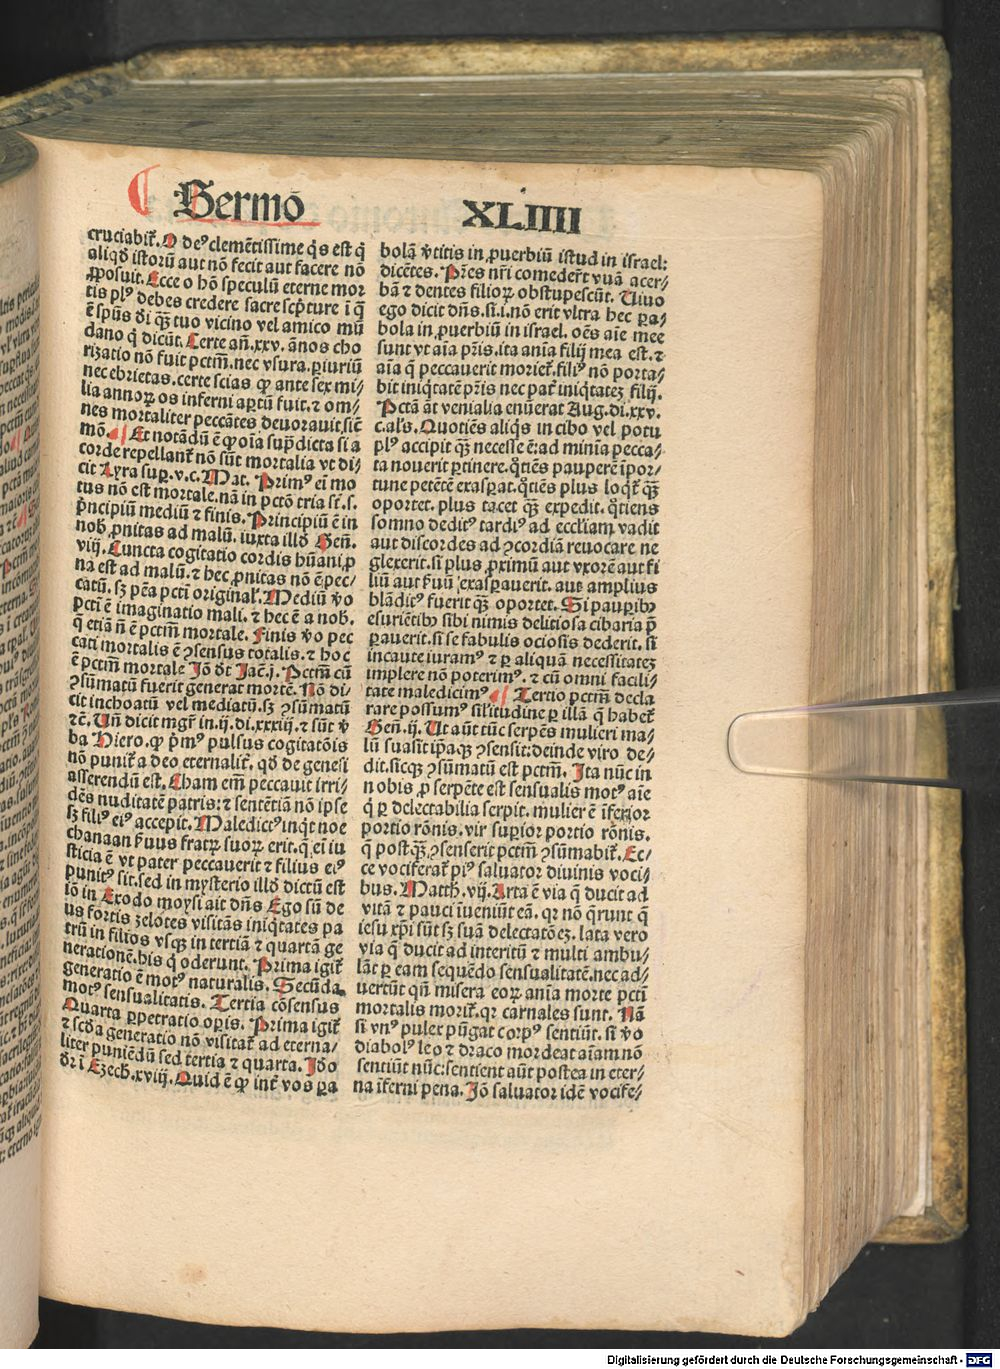 Sermō XLIIII
cruciabit᷑. O deꝰ clemētissime q̇s est q̇
aliqd̛ istorū aut nō fecit aut facere nō
ꝓposuit. Ecce o hō speculū eterne mor
tis plꝰ debes credere sacre scp̄ture ī q̄
ē spūs d̛i qꝫ̄ tuo vicino vel amico mū
dano q̇ dicūt. Certe añ.xxv. ānos cho
rizatio nō fuit pctm̄. nec vsura. ꝑiuriū
nec ebrietas. certe scias ꝙ ante sex mi⸗
lia annoꝝ os inferni aꝑtū fuit. ⁊ om⸗
nes mortaliter peccātes deuorauit, sic̄
mō. Et notādū ē ꝙ oīa sup̄dicta si a
corde repellant᷑ nō sūt mortalia vt di⸗
cit Lyra suꝑ .v.c. Mat. Primꝰ eī mo
tus nō est mortale. nā in pctō tria st̄. s.
pͥncipiū mediū ⁊ finis. Principiū ē in
nob̛ ꝓnitas ad malū. iuxta illd̛ Geñ.
viij. Cuncta cogitatio cordis hūani ꝓ
na est ad malū. ⁊ hec ꝓnitas nō ē pec⸗
catū. sꝫ pēa pcti originał. Mediū v̛o
pcti ē imaginatio mali. ⁊ hec ē a nob̛.
q̄ etiā ñ ē pctm̄ mortale. Finis v̛o pec
cati mortalis ē ꝯsensus totalis. ⁊ hoc
ē pctm̄ mortale Jō d̛t Jac̄.j. Pctm̄ cū
ꝯsūmatū fuerit generat mortē. Nō di⸗
cit inchoatū vel mediatū. sꝫ ꝯsūmatū
⁊c̄. Vn̄ dicit mgr̄ in.ij.di.xxxiij. ⁊ sūt v̛
ba Hiero. ꝙ pͥmꝰ pulsus cogitatōis
nō punit᷑ a deo eternalit᷑. qd̛ de genesi
asserendū est. Cham em̄ peccauit irri⸗
dēs nuditatē patris: ⁊ sentētiā nō ipse
sꝫ filiꝰ eiꝰ accepit. Maledictꝰ inq̇t noe
chanaan s̛uus fratꝝ suoꝝ erit. q̄ eī iu
sticia ē vt pater peccauerit ⁊ filius eiꝰ
punitꝰ sit. sed in mysterio illd̛ dictū est
iō in Exodo moysi ait dñs Ego sū de
us fortis zelotes visitās iniq̇tates pa
trū in filios vsqꝫ in tertiā ⁊ quartā ge
nerationē. his q̇ oderunt. Prima igit᷑
generatio ē motꝰ naturalis. Secūda
motꝰ sensualitatis. Tertia cōsensus
Quarta ꝑpetratio oꝑis. Prima igit᷑
⁊ scd̛a generatio nō visitat᷑ ad eterna⸗
liter puniēdū sed tertia ⁊ quarta. Jd̛o
d̛r ī Ezech.xviij. Quid ē ꝙ int᷑ vos ꝑa
bolā v̛titis in ꝓuerbiū istud in israel:
dicētes. Pr̄es nr̄i comeder̄t vuā acer⸗
bā ⁊ dentes filioꝝ obstupescūt. Viuo
ego dicit dñs. si.i. nō erit vltra hec ꝑa⸗
bola in ꝓuerbiū in israel. oēs aīe mee
sunt vt aīa pr̄is. ita anīa filij mea est. ⁊
aīa q̄ peccauerit moriet᷑. filiꝰ nō porta⸗
bit iniq̇tatē pr̄is nec pat᷑ iniq̇tatez filij.
Pctā āt venialia enūerat Aug. di.xxv.
c.als̄. Quotiēs aliq̇s in cibo vel potu
plꝰ accipit qꝫ̄ necesse ē: ad mīnīa pecca⸗
ta nouerit ꝑtinere. q̊tiēs pauperē īpor⸗
tune petētē exasꝑat. q̊tiēs plus loq̇t᷑ qꝫ̄
oportet. plus tacet qꝫ̄ expedit. q̊tiens
somno deditꝰ tardiꝰ ad eccl̄iam vadit
aut discordes ad ꝯcordiā reuocare ne
glexerit. si plus ꝓximū aut vxorē aut fi
liū aut s̛uū exasꝑauerit. aut amplius
blāditꝰ fuerit qꝫ̄ oportet. Si pauꝑibꝫ
esuriētibꝫ sibi nimis delitiosa cibaria p̄
ꝑauerit. si se fabulis ociosis dederit. si
incaute iuramꝰ ⁊ ꝑ aliquā necessitatez
implere nō poterimꝰ. ⁊ cū omni facili⸗
tate maledicimꝰ Tertio pctm̄ decla
rare possumꝰ sil̄itudine ꝑ illā q̄ habet᷑
Geñ.ij. Ut aūt tūc serpēs mulieri ma⸗
lū suasit ip̄aqꝫ ꝯsensit: deinde viro de⸗
dit. sicqꝫ ꝯsūmatū est pctm̄. Ita nūc in
nobis ꝓ serpēte est sensualis motꝰ aīe
q̇ ꝑ delectabilia serpit. mulier ē īferior
portio rōnis. vir suꝑior portio rōnis.
q̇ postqꝫ̄ ꝯsenserit pctm̄ ꝯsūmabit᷑. Ec⸗
ce vociferat᷑ piꝰ saluator diuinis voci⸗
bus. Matth.vij. Arta ē via q̄ ducit ad
vitā ⁊ pauci īueniūt eā. qꝛ nō q̄runt q̄
iesu xp̄i sūt sꝫ suā delectatōeꝫ. lata vero
via q̄ ducit ad interitū ⁊ multi ambu⸗
lāt ꝑ eam sequēdo sensualitatē. nec ad⸗
uertūt qn̄ misera eoꝝ anīa morte pcti
mortalis morit᷑. qꝛ carnales sunt. Nā
si vnꝰ pulex pūgat corpꝰ sentiūt. si v̛o
diabolꝰ leo ⁊ draco mordeat aīam nō
sentiūt nūc: sentient aūt postea in eter⸗
na īferni pena. Jō saluator idē vocife⸗
Digitalisierung gefördert durch die Deutsche Forschungsgemeinschaft - DFG